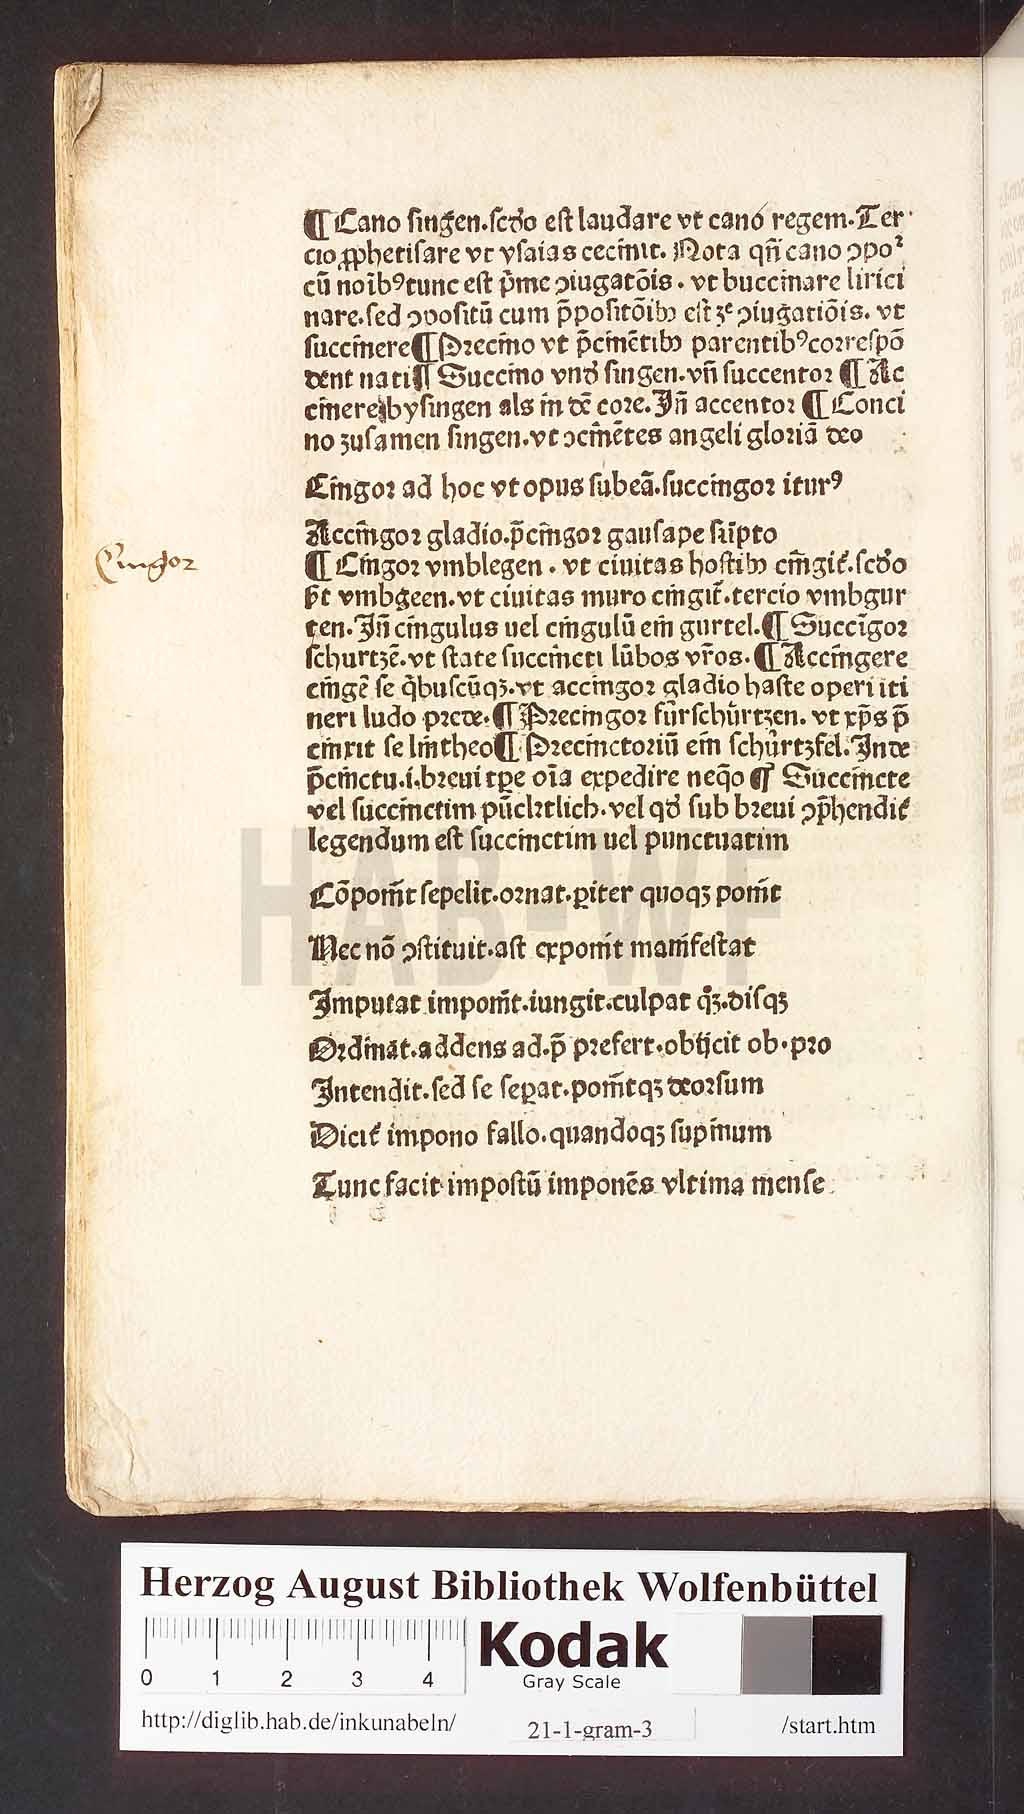 ¶ Cano singen.scďo est laudare vt cano regem.Ter
cio ꝓphetisare vt ysaias cecinit. Nota qñ cano ↄpoꝛ᷒
cū noib⁹ tunc est p̄me ↄiugatōis . vt buccinare lirici
nare.sed ↄpositū cum p̄positōibꝰ est ʒe ↄiugatiōis. vt
succinere ¶ Precino vt p̄cinētibꝰ parentib⁹ correspō
dent nati ¶ Succino vnď singen.vñ succentor ¶ Ac
cinere bysingen als in dē core. Iñ accentor ¶ Conci
no zusamen singen.vt ↄcinētes angeli gloriā deo
Cingor ad hoc vt opus subeā.succingor itur⁹
Accingor gladio.p̄cingor gausape sūpto
Cingor
¶ Cingor vmblegen . vt ciuitas hostibꝰ cingit᷑.scďo
p̄t vmbgeen.vt ciuitas muro cingit᷑.tercio vmbgur
ten. Iñ cingulus uel cingulū ein gurtel. ¶ Succīgor
schurtzē.vt state succincti lūbos vr̄os. ¶ Accingere
cingē se q̇buscūqꝫ.vt accingor gladio haste operi iti
neri ludo prede. ¶ Precingor fürschürtzen. vt xp̄s p̄
cinxit se lintheo ¶ Precinctoriū ein schürtzfel. Inde
p̄cinctu.i.breui tꝑe oīa expedire neq̊o ¶ Succincte
vel succinctim pūcktlich.vel qď sub breui ↄp̄hendit᷑
legendum est succinctim uel punctuatim
Cōponit sepelit.ornat.ꝑiter quoqꝫ ponit
Nec nō ↄstituit.ast exponit manifestat
Imputat imponit.iungit.culpat q̊ꝫ.disqꝫ
Ordinat.addens ad.p̄ prefert.obijcit ob.pro
Intendit.sed se seꝑat.ponitqꝫ deorsum
Dicit᷑ impono fallo.quandoqꝫ supinum
Tunc facit impostū imponēs vltima mense
HAB-WF
Herzog August Bibliothek Wolfenbüttel
Kodak
Gray Scale
0 1 2 3 4
http://diglib.hab.de/inkunabeln/ 21-1-gram-3 /start.htm